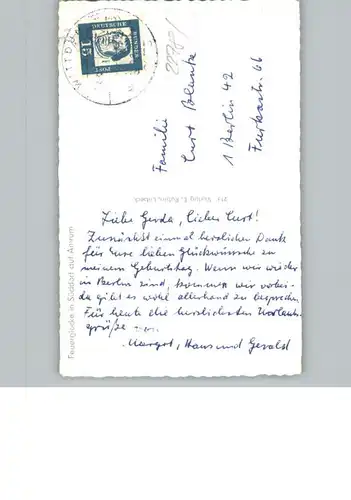 15
DEUTSCHE
BUNDESPOST
WITTDÜN
Familie
Curt
1 Berlin 42
Furkastr. 66
Verlag E. Rubin, Lübeck
Feuerglocke in Süddorf auf Amrum
Liebe Gerda, lieber Curt!
Zunächst einmal herzlichen Dank
für Eure lieben Glückwünsche zu
meinem Geburtstag. Wenn wir wieder
in Berlin sind, kommt wir vorbei-
da gibt es wohl allerhand zu besprechen.
Für heute die herzlichsten Urlaubs-
grüße von
Margot, Hans und Gerald